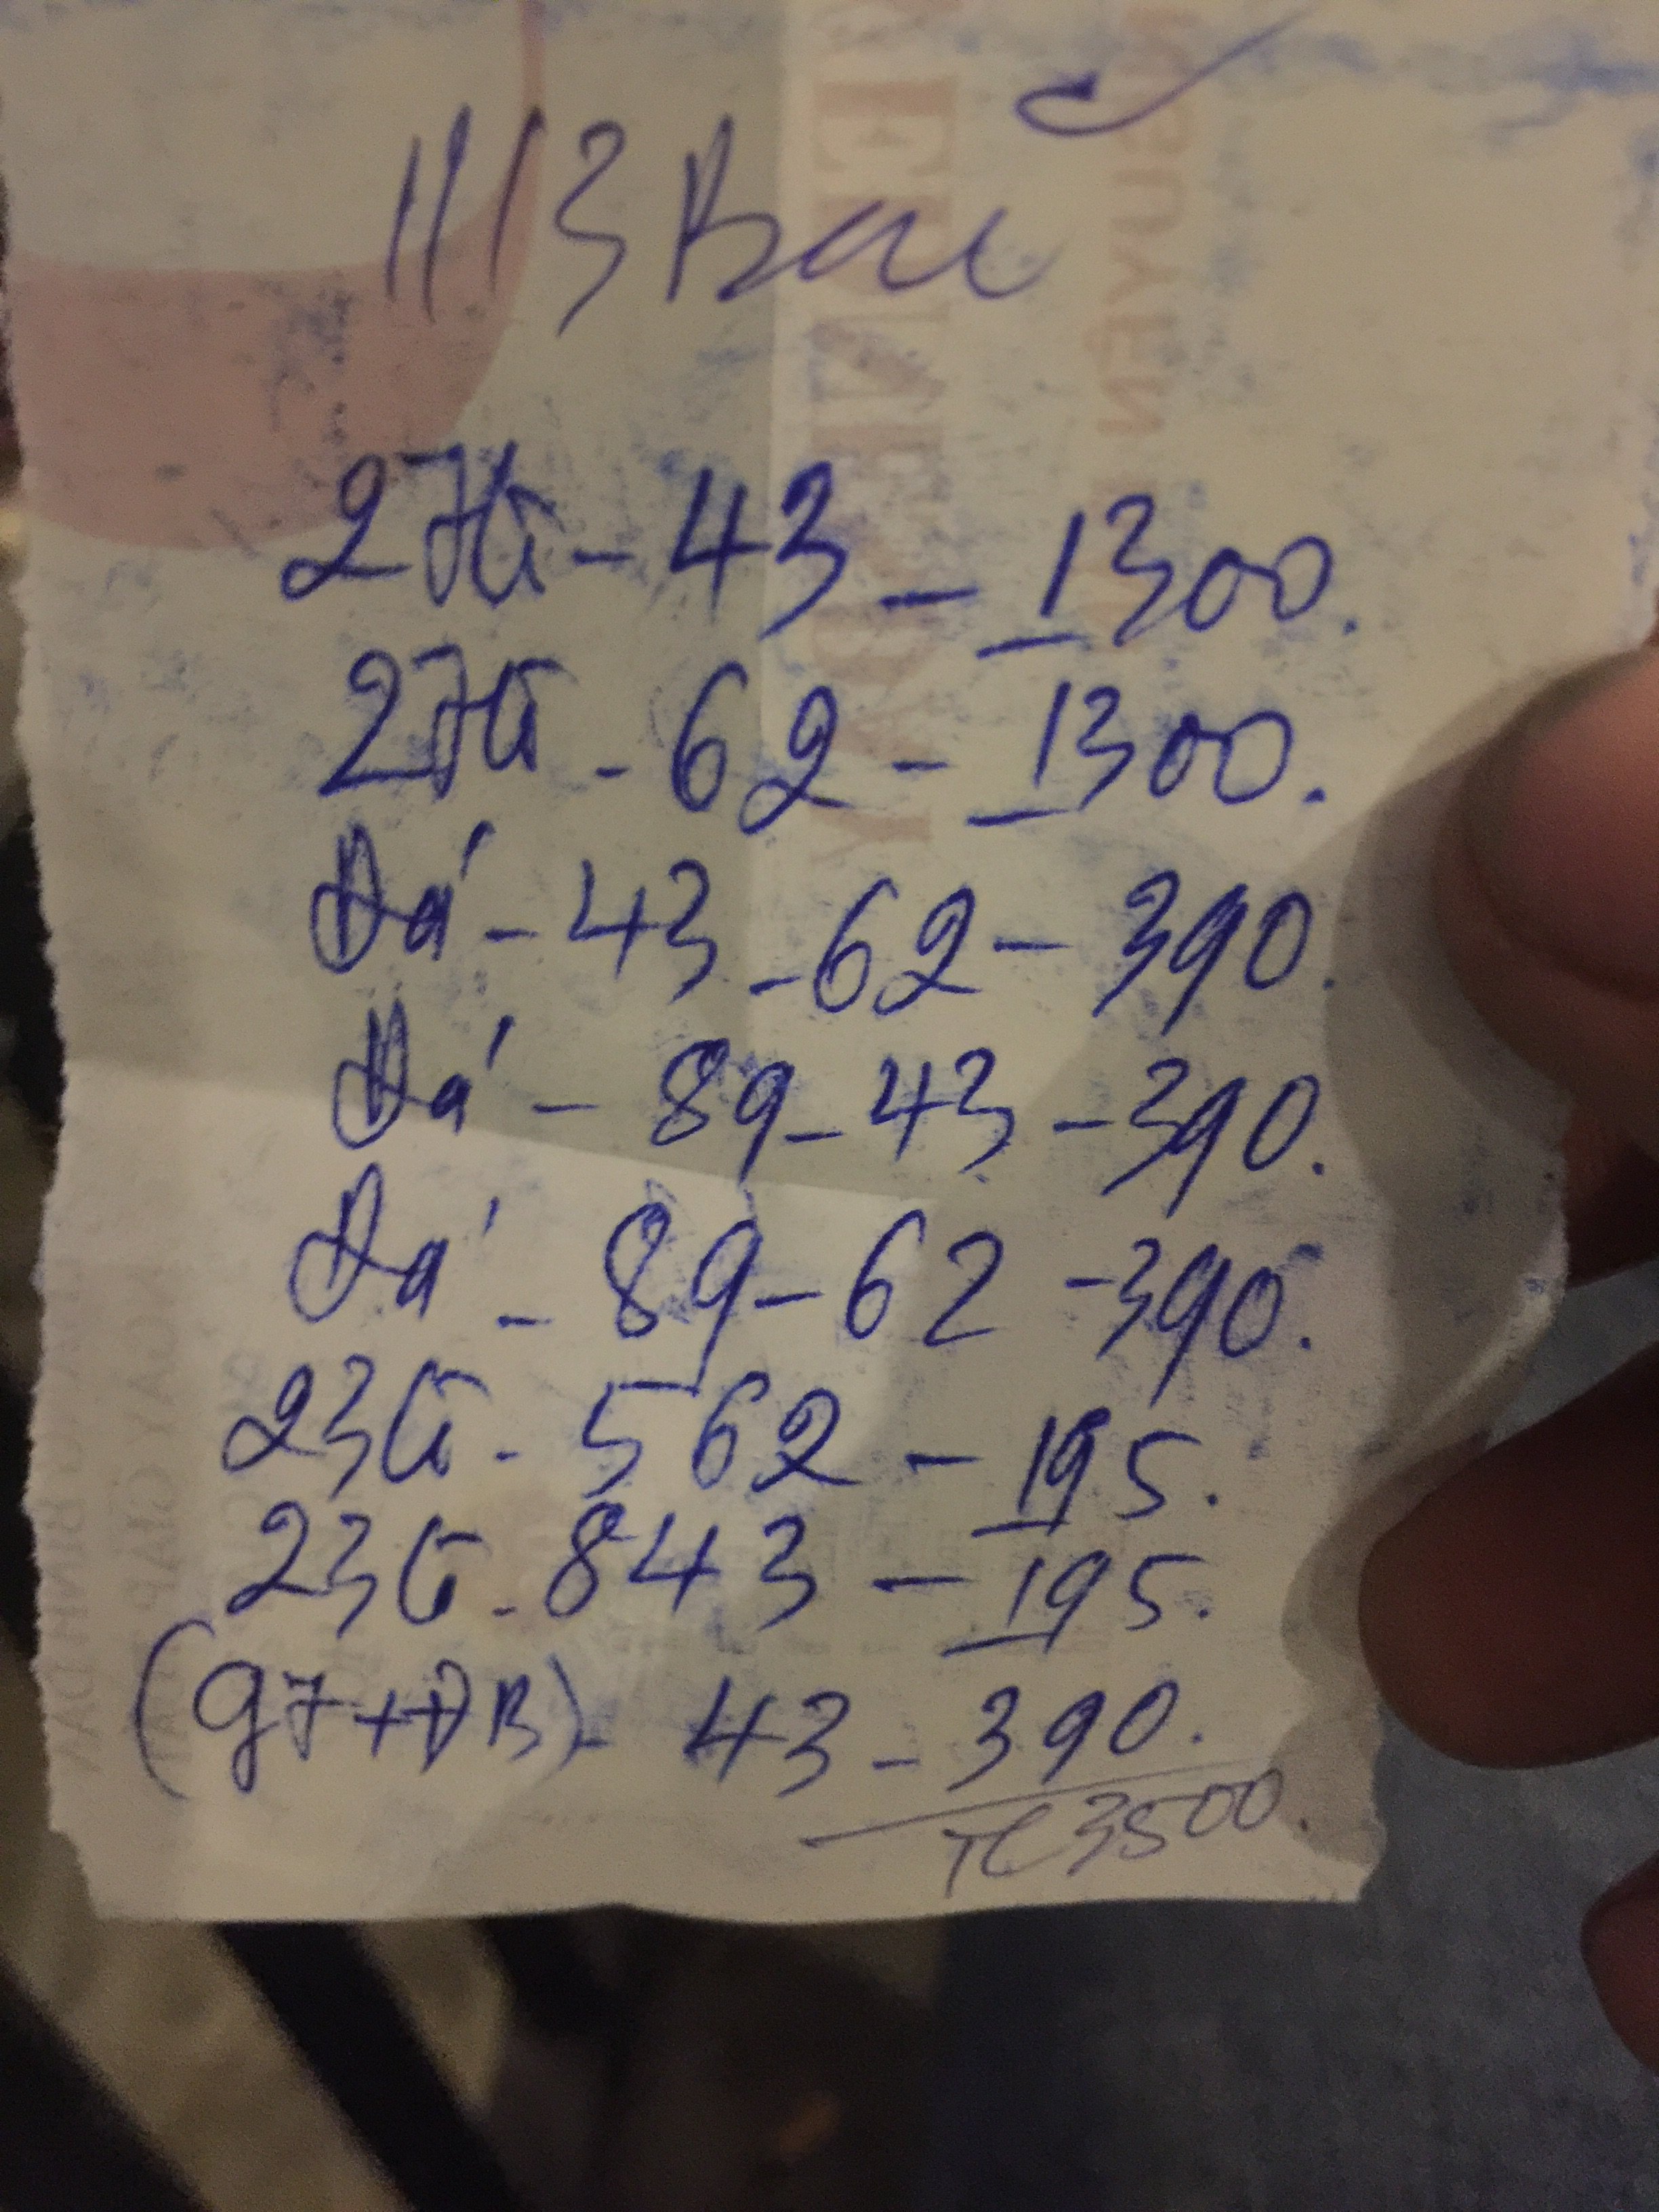 11/3 Bac
27lô - 43 - 1300.
27lô - 62 - 1300.
Đá - 43 - 62 - 390.
Đá - 89 - 43 - 390.
Đá - 89 - 62 - 390.
23lô - 562 - 195.
23lô - 843 - 195.
(g7+ĐB) - 43 - 390.
TC 3500.